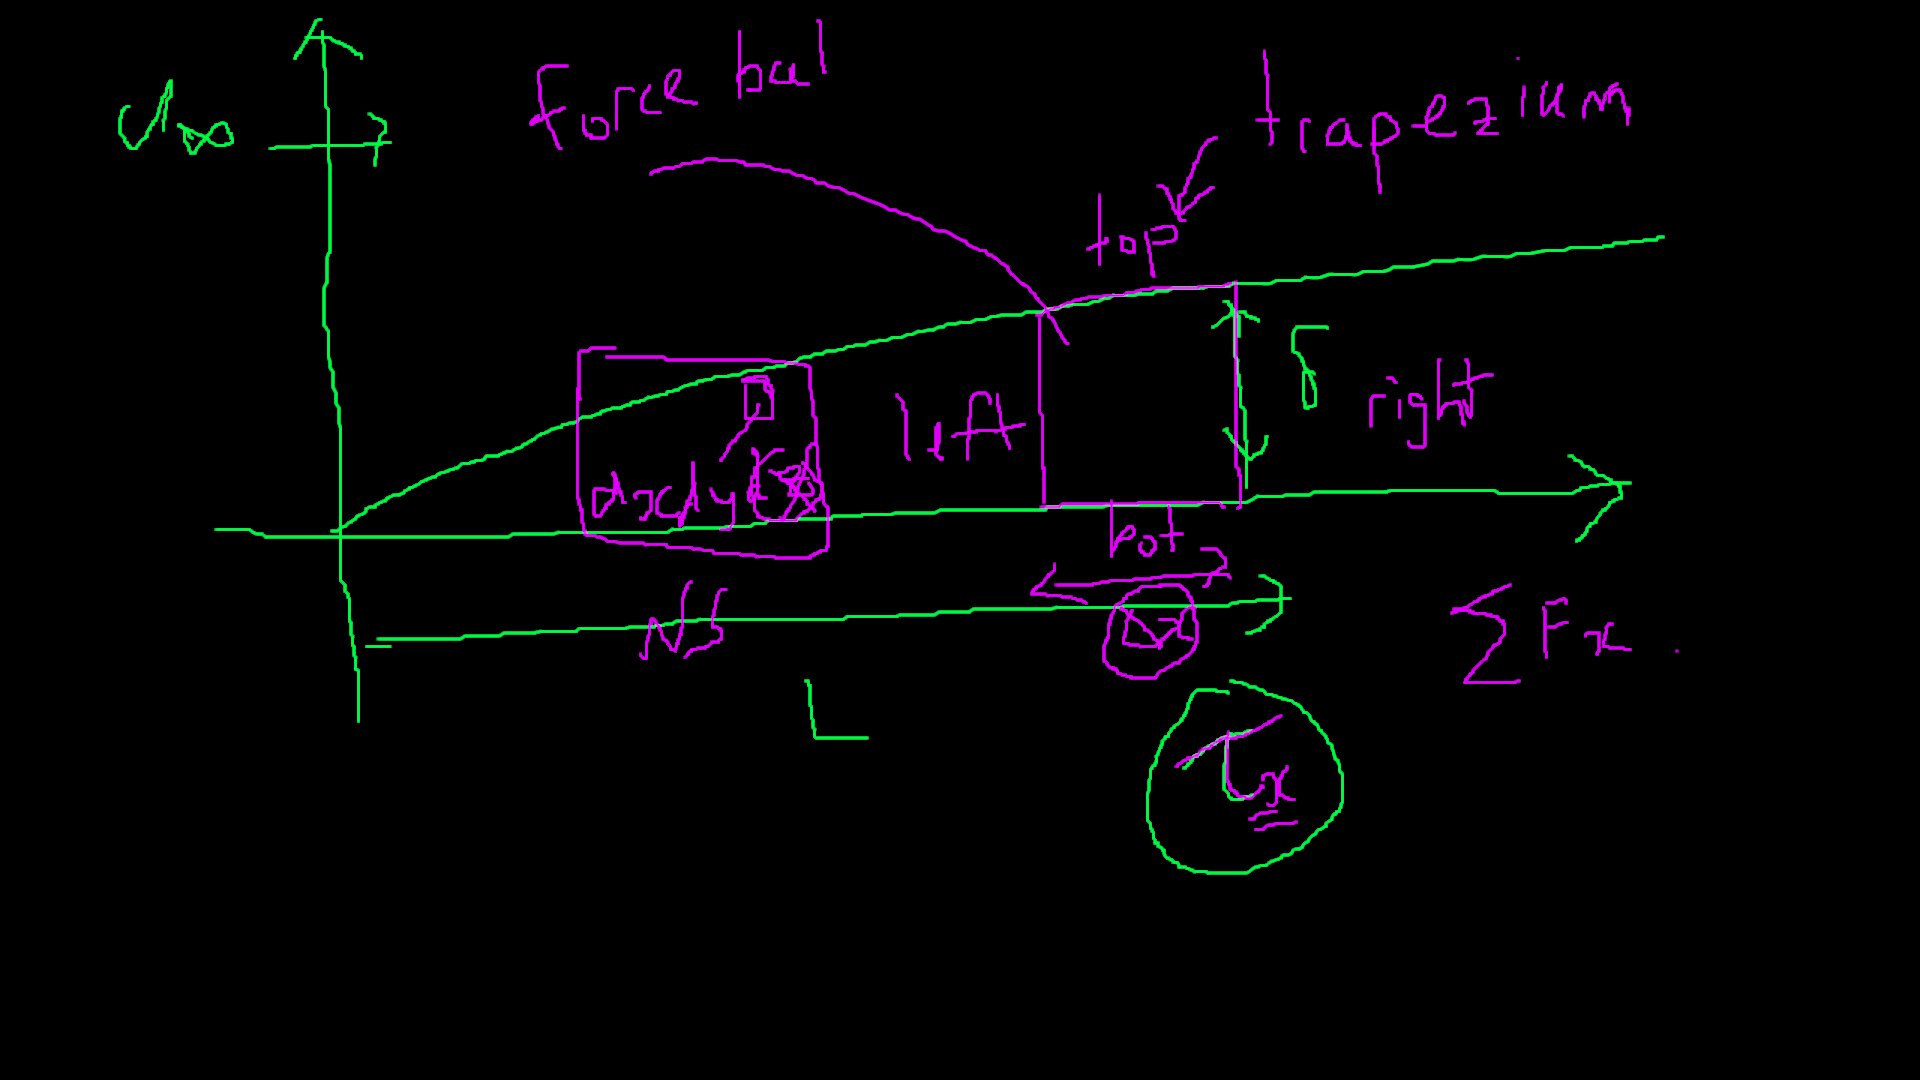 U∞
Force bal
trapezium
top
left
right
dxdy
NS
bot
ΣFx
L
τx